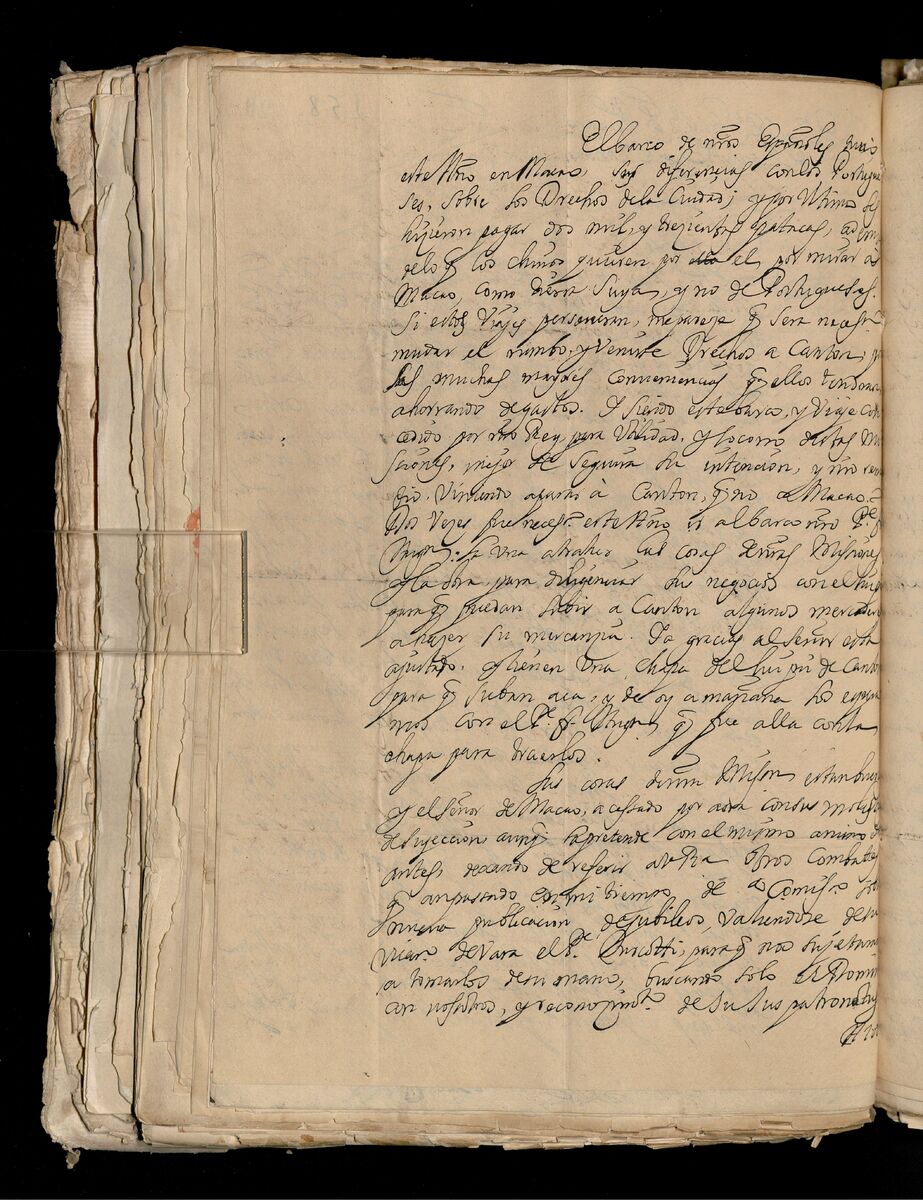 El barco de nr̃os Españoles tuvo
este Año en Macao, sus diferencias con los Portugue
ses, sobre los Drechos de la Ciudad; y por Ultimo se
hizieron pagar dos mil, y trezientas patacas, a
delo q̃ los chinos quieren por el, por mirar a
Macao, como tierra Suya, y no de Portugueses.
Si estos Viajes perseveran, me pareze q̃ sera neces
mudar el rumbo, y Venirse Drechos a Canton, p
las muchas mayores conveniencias q̃ ellos tendran
ahorrando de gastos. Y siendo este barco, y Viaje con
cedido por nr̃o Rey, para Vtilidad, y socorro destas Mi
siones, mejor se seguira su intencion, y
Viniendo a Canton, q̃ no a Macao.
Dos Vezes fue neces.º este Año ir al barco nr̃o P.e f
Migu.l la una a traher las cosas de nr̃as Misiones
y la otra para diligenciar sus negocios con el
para q̃ puedan subir a Canton algunos mercadere
a hazer su mercanzia. Ya gracias al Señor esta
ajustado. y tienen Una chapa del de Canto
para q̃ suban aca, y de oy a mañana los espera
mos con el P.e f. Migu.l q̃ fue alla con la
chapa para traerlos.
Las cosas de nr̃a Mision estan
y el Señor de Macao, a cessado por aora con sus
de sujeccion, aunq̃ la pretende con el mismo animo q̃
antes, dexando de referir a V. R.a otros combates
q̃ an passado en mi tiempo, de
nueva publicacion de Jubileos, Valiendose de su
vicar.o de Vara el P.e, para q̃ nos sujetemos
a tomarlos de su mano, buscando solo el Domin
en nosotros, y reconozim.to de su Jus patronatus